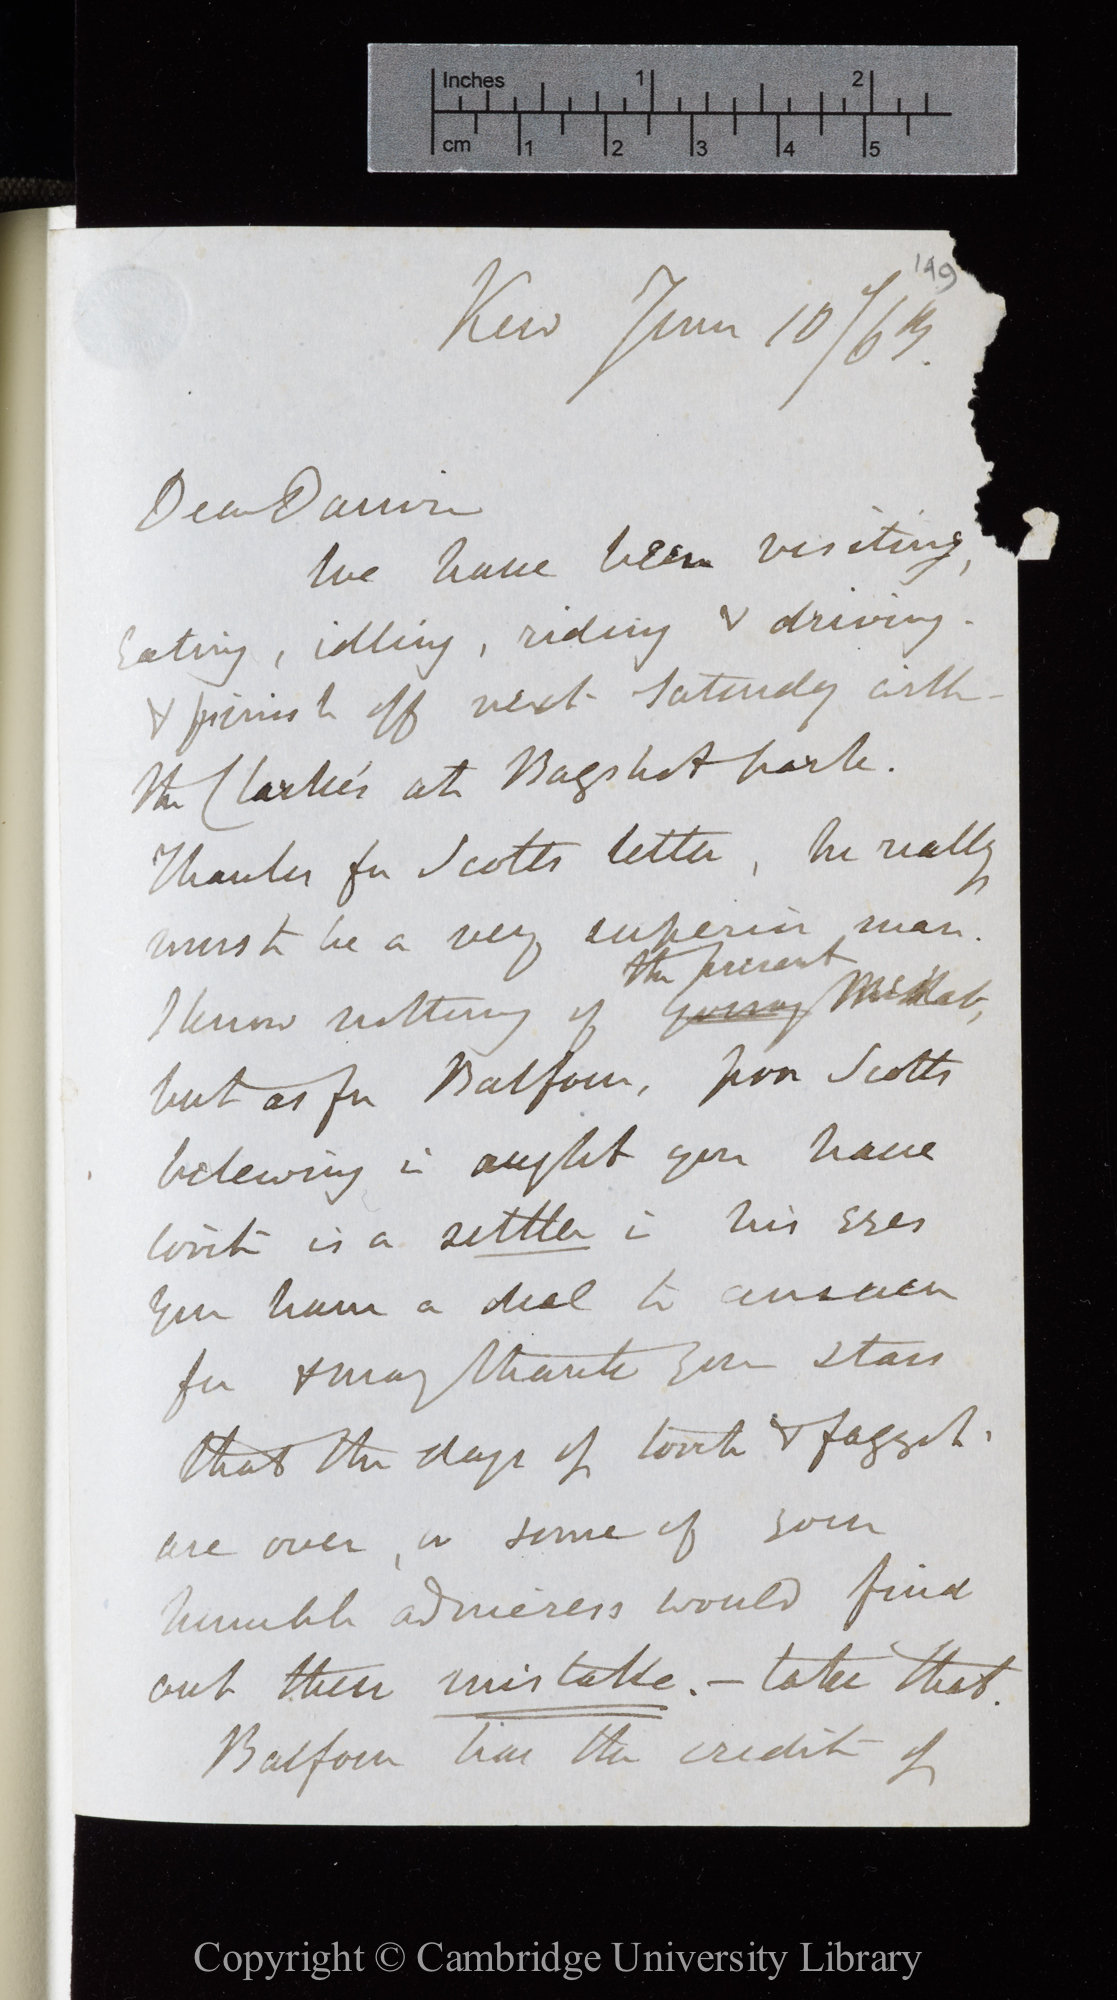 Inches 1 2
cm 1 2 3 4 5
149
Kew June 10th/63.
Dear Darwin
We have been visiting,
Eating, idling, riding & driving.
& finish off next Saturday with
the Clarke's at Bagshot park.
Thanks for Scotts letter, he really
must be a very superior man.
the present
I know nothing of young McNab,
but as for Balfour, poor Scotts
believing in aught you have
writ is a settler in his eyes
you have a deal to answer
for & may thank your stars
that the days of torch & faggot.
are over, or some of your
humble admirers would find
out their mistake. — take that.
Balfour has the credit of
Copyright © Cambridge University Library